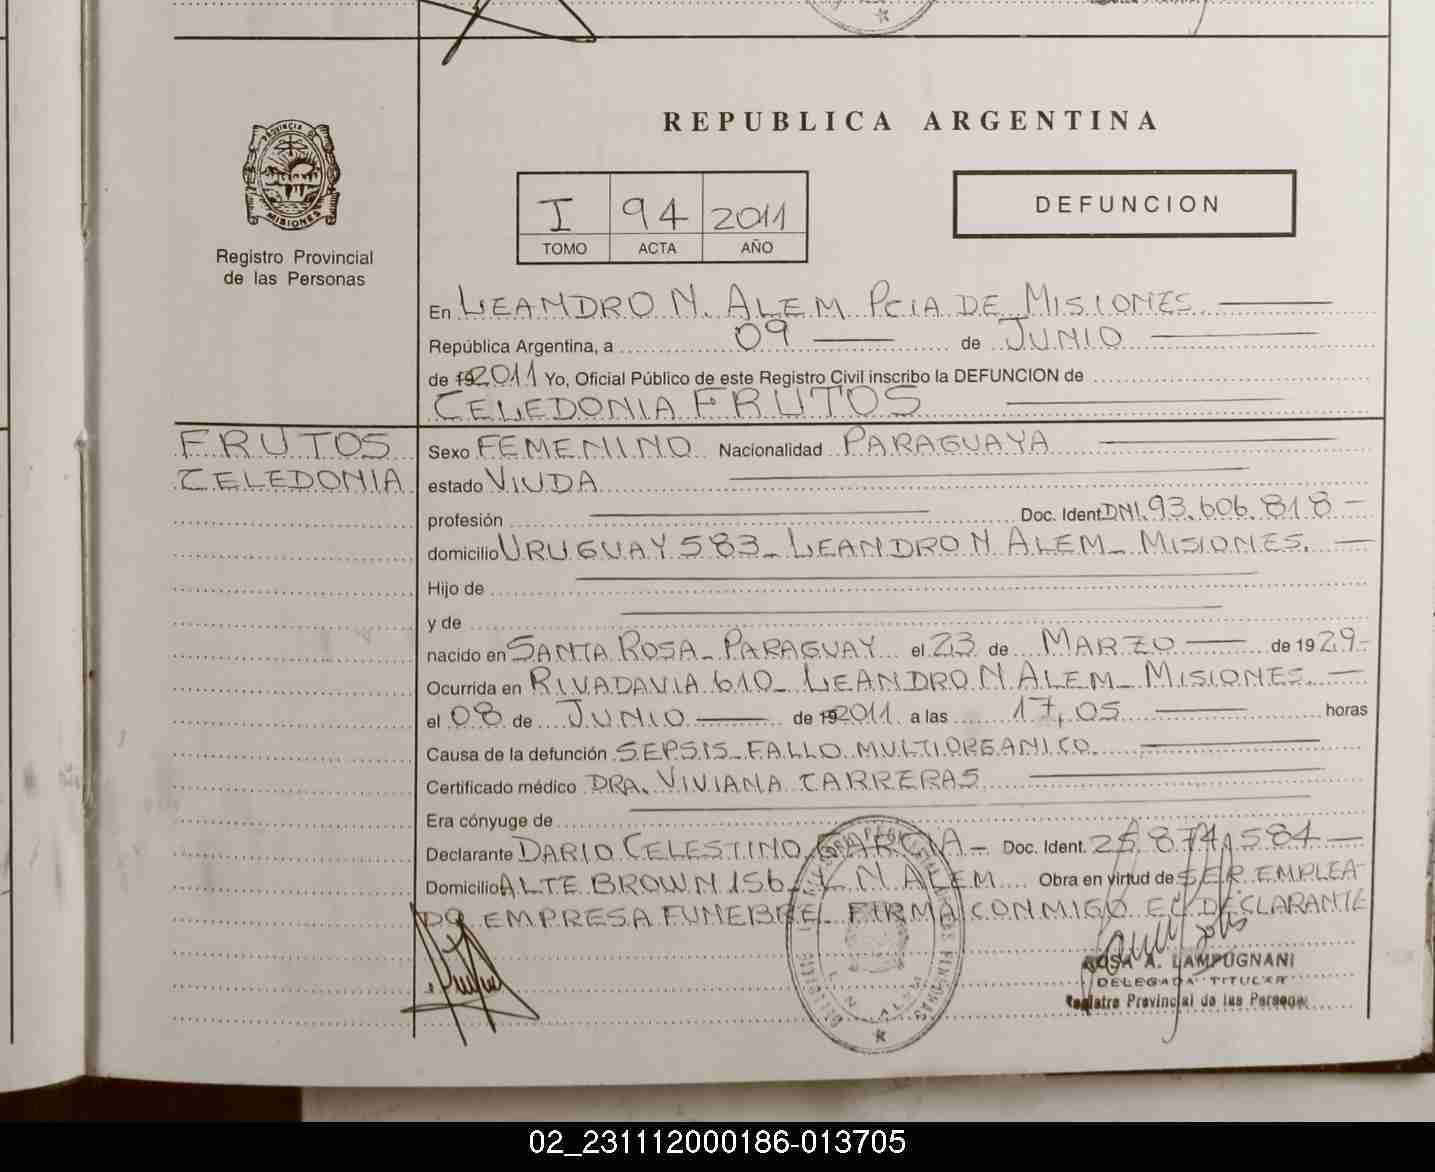 REPUBLICA ARGENTINA
PROVINCIA DE
MISIONES
Registro Provincial
de las Personas
I 94 2011
TOMO ACTA AÑO
DEFUNCION
En LEANDRO N. ALEM PCIA DE MISIONES
República Argentina, a 09 de JUNIO
de 192011 Yo, Oficial Público de este Registro Civil inscribo la DEFUNCION de
CELEDONIA FRUTOS
FRUTOS
CELEDONIA
Sexo FEMENINO Nacionalidad PARAGUAYA
estado VIUDA
profesión Doc. Ident DNI. 93.606.818-
domicilio URUGUAY 583_ LEANDRO N ALEM_ MISIONES.
Hijo de
y de
nacido en SANTA ROSA_ PARAGUAY el 23 de MARZO de 1929-
Ocurrida en RIVADAVIA 610_ LEANDRO N ALEM_ MISIONES.
el 08 de JUNIO de 192011 a las 17,05 horas
Causa de la defunción SEPSIS_FALLO MULTIORGANICO.
Certificado médico DRA. VIVIANA CARRERAS
Era cónyuge de
Declarante DARIO CELESTINO GARCIA- Doc. Ident. 25.874.584-
Domicilio ALTE BROWN 156_ L N ALEM Obra en virtud de SER EMPLEA-
DO EMPRESA FUNEBRE_ FIRMA CONMIGO EL DECLARANTE
ROSA A. LAMPUGNANI
DELEGADA TITULAR
Registro Provincial de las Personas
L. N. ALEM
02_231112000186-013705